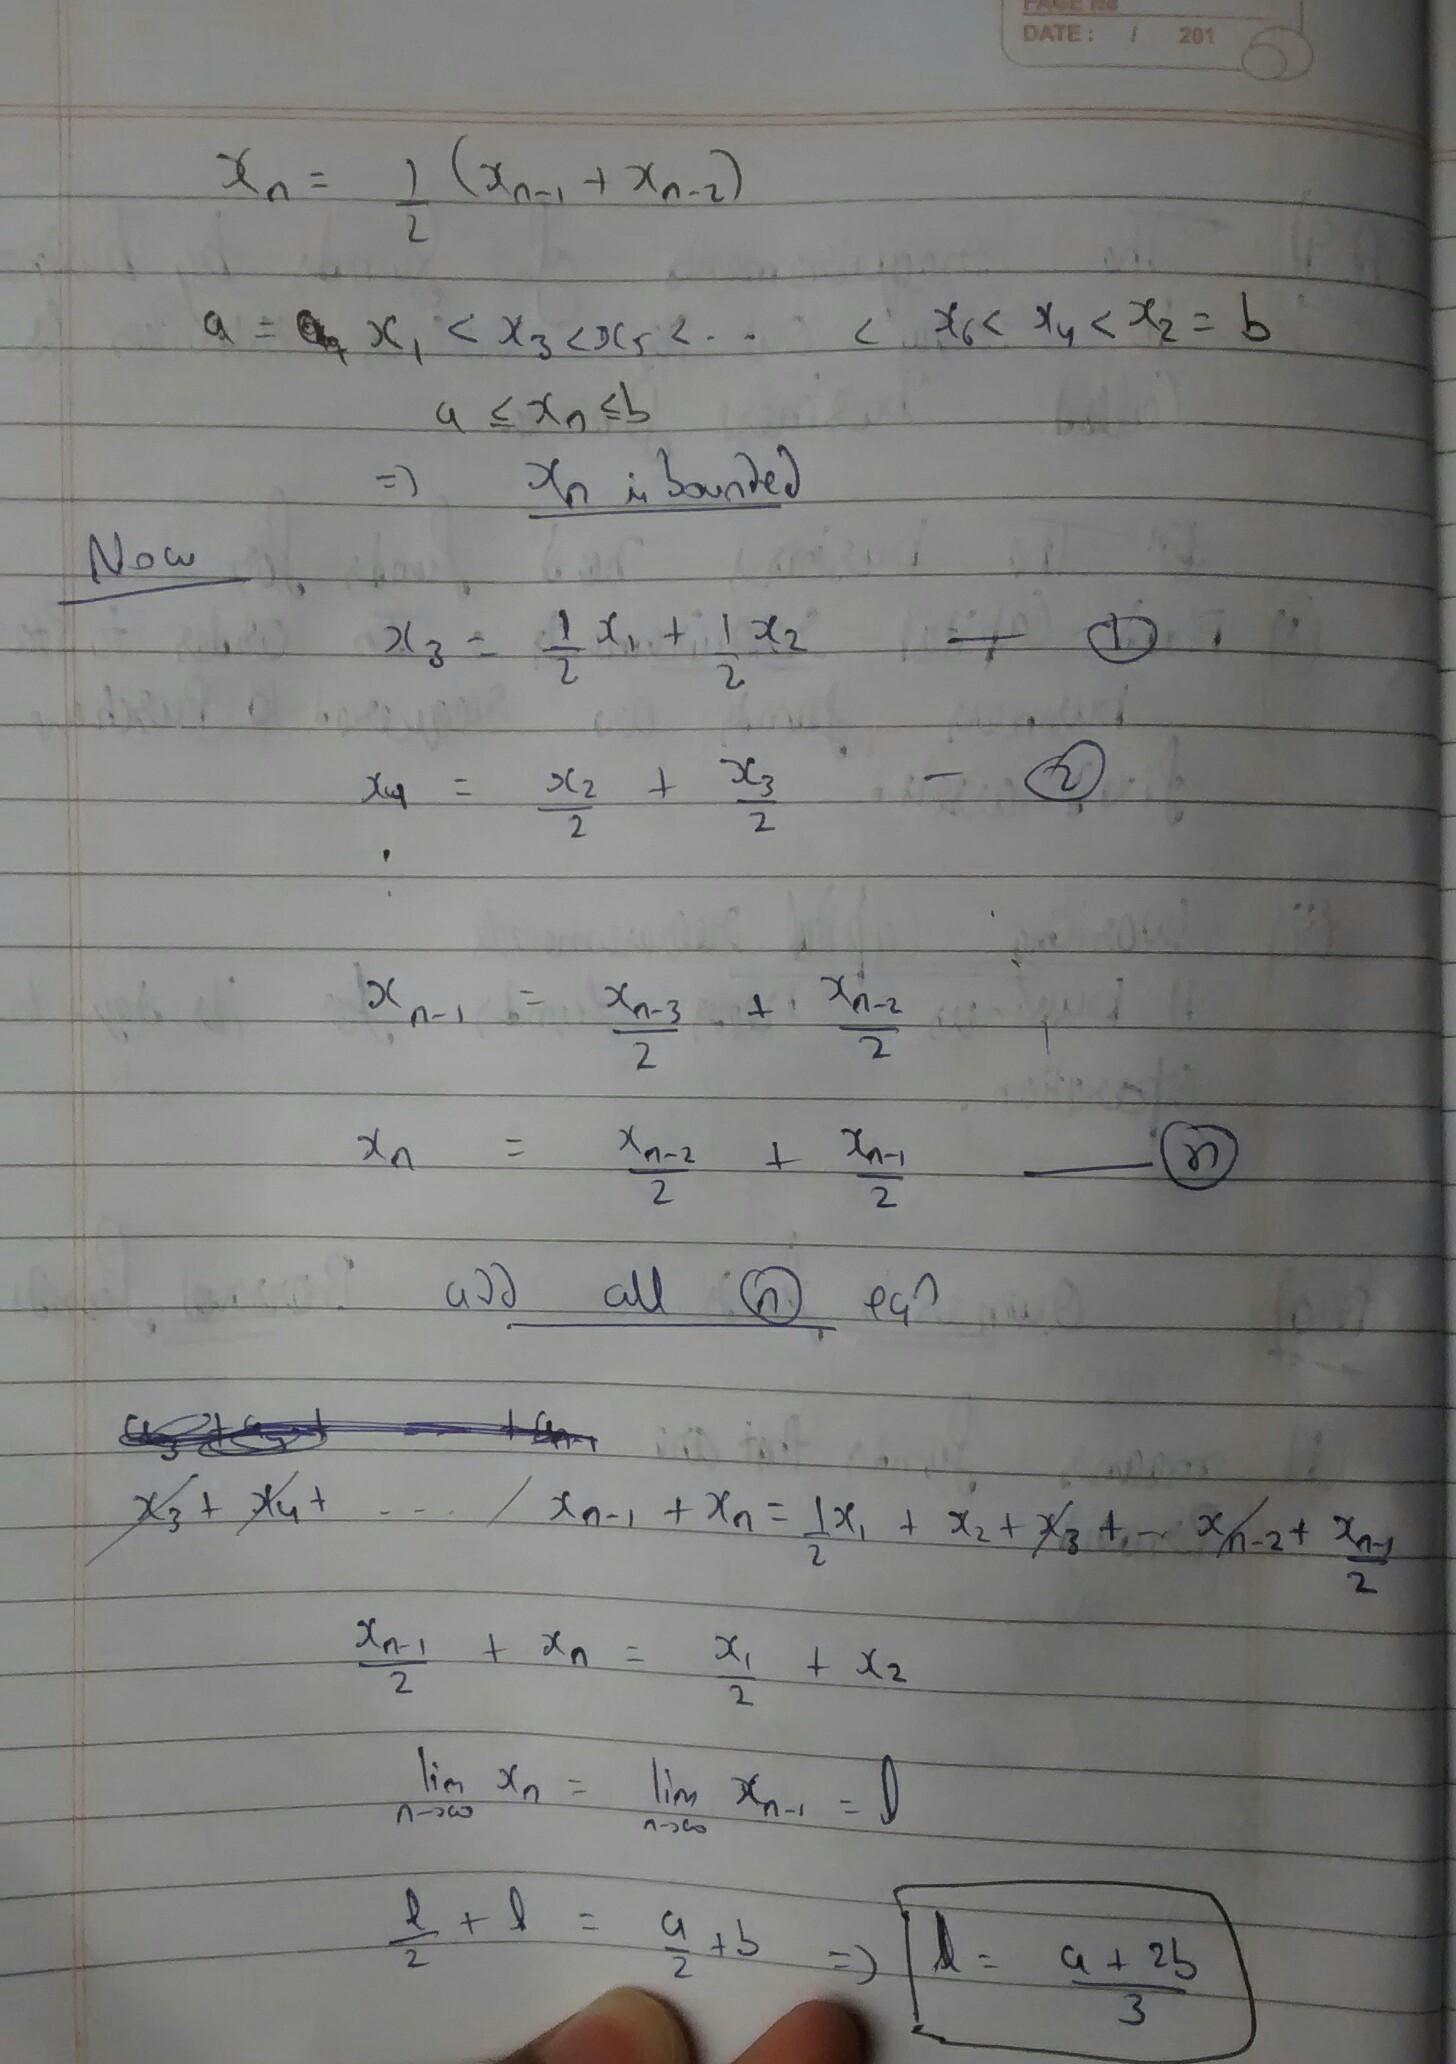 PAGE No
DATE: / 201
xₙ = 1/2 (xₙ₋₁ + xₙ₋₂)
a = x₁ < x₃ < x₅ < ... < x₆ < x₄ < x₂ = b
a ≤ xₙ ≤ b
=) xₙ is bounded
Now
x₃ = 1/2 x₁ + 1/2 x₂ — ①
x₄ = x₂/2 + x₃/2 — ②
xₙ₋₁ = xₙ₋₃/2 + xₙ₋₂/2
xₙ = xₙ₋₂/2 + xₙ₋₁/2 — ⓝ
add all ⓝ eqⁿ
x₃ + x₄ + .... xₙ₋₁ + xₙ = 1/2 x₁ + x₂ + x₃ + ... xₙ₋₂ + xₙ₋₁/2
xₙ₋₁/2 + xₙ = x₁/2 + x₂
lim n→∞ xₙ = lim n→∞ xₙ₋₁ = l
l/2 + l = a/2 + b =) l = (a + 2b)/3